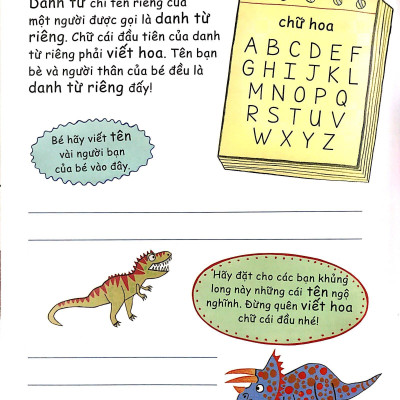 Danh từ chỉ tên riêng của
một người được gọi là danh từ
riêng. Chữ cái đầu tiên của danh
từ riêng phải viết hoa. Tên bạn
bè và người thân của bé đều là
danh từ riêng đấy!
chữ hoa
A B C D E F
G H I J K L
M N O P Q
R S T U V
W X Y Z
Bé hãy viết tên
vài người bạn
của bé vào đây.
Hãy đặt cho các bạn khủng
long này những cái tên ngộ
nghĩnh. Đừng quên viết hoa
chữ cái đầu nhé!